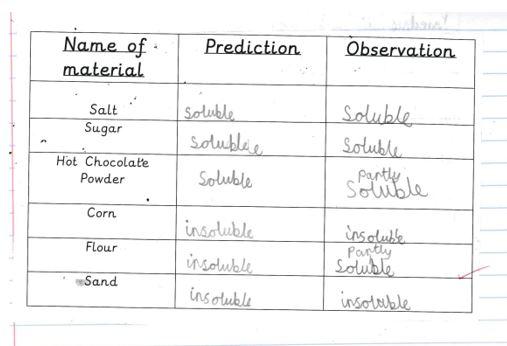 Name of material Prediction Observation
Salt soluble Soluble
Sugar solublele Soluble
Hot Chocolate Powder Soluble Partly Soluble
Corn insoluble insoluble
Flour insoluble Partly Soluble
Sand insoluble insoluble